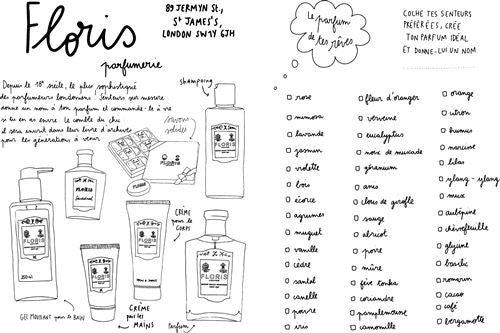 Floris
parfumerie
89 JERMYN ST.,
St JAMES'S,
LONDON SW1Y 6JH
Depuis le 18e siècle, le plus sophistiqué
des parfumeurs londoniens. Senteurs sur mesure
donne un nom à ton parfum et commande-le à vie
si tu en as envie. Le comble du chic
il sera inscrit dans leur livre d'archives
pour les générations à venir
Shampoing
savons
solides
FLORIS
FLORIS
FLORIS
FLORIS
FLORIS
FLORIS
FLORIS
CRÈME
pour le
CORPS
250 ml
GEL MOUSSANT pour le BAIN
CRÈME
pour les
MAINS
Parfum
Le parfum
de tes rêves
COCHE TES SENTEURS
PRÉFÉRÉES, CRÉE
TON PARFUM IDÉAL
ET DONNE-LUI UN NOM
rose
mimosa
lavande
jasmin
violette
bois
écorce
agrumes
muguet
vanille
cèdre
santal
canelle
poivre
iris
fleur d'oranger
verveine
eucalyptus
noix de muscade
géranium
anis
clous de girofle
sauge
abricot
poire
mûre
fève tonka
coriandre
pamplemousse
camomille
orange
citron
humus
narcisse
lilas
ylang-ylang
musc
aubépine
chèvrefeuille
glycine
basilic
romarin
cacao
café
bergamotte